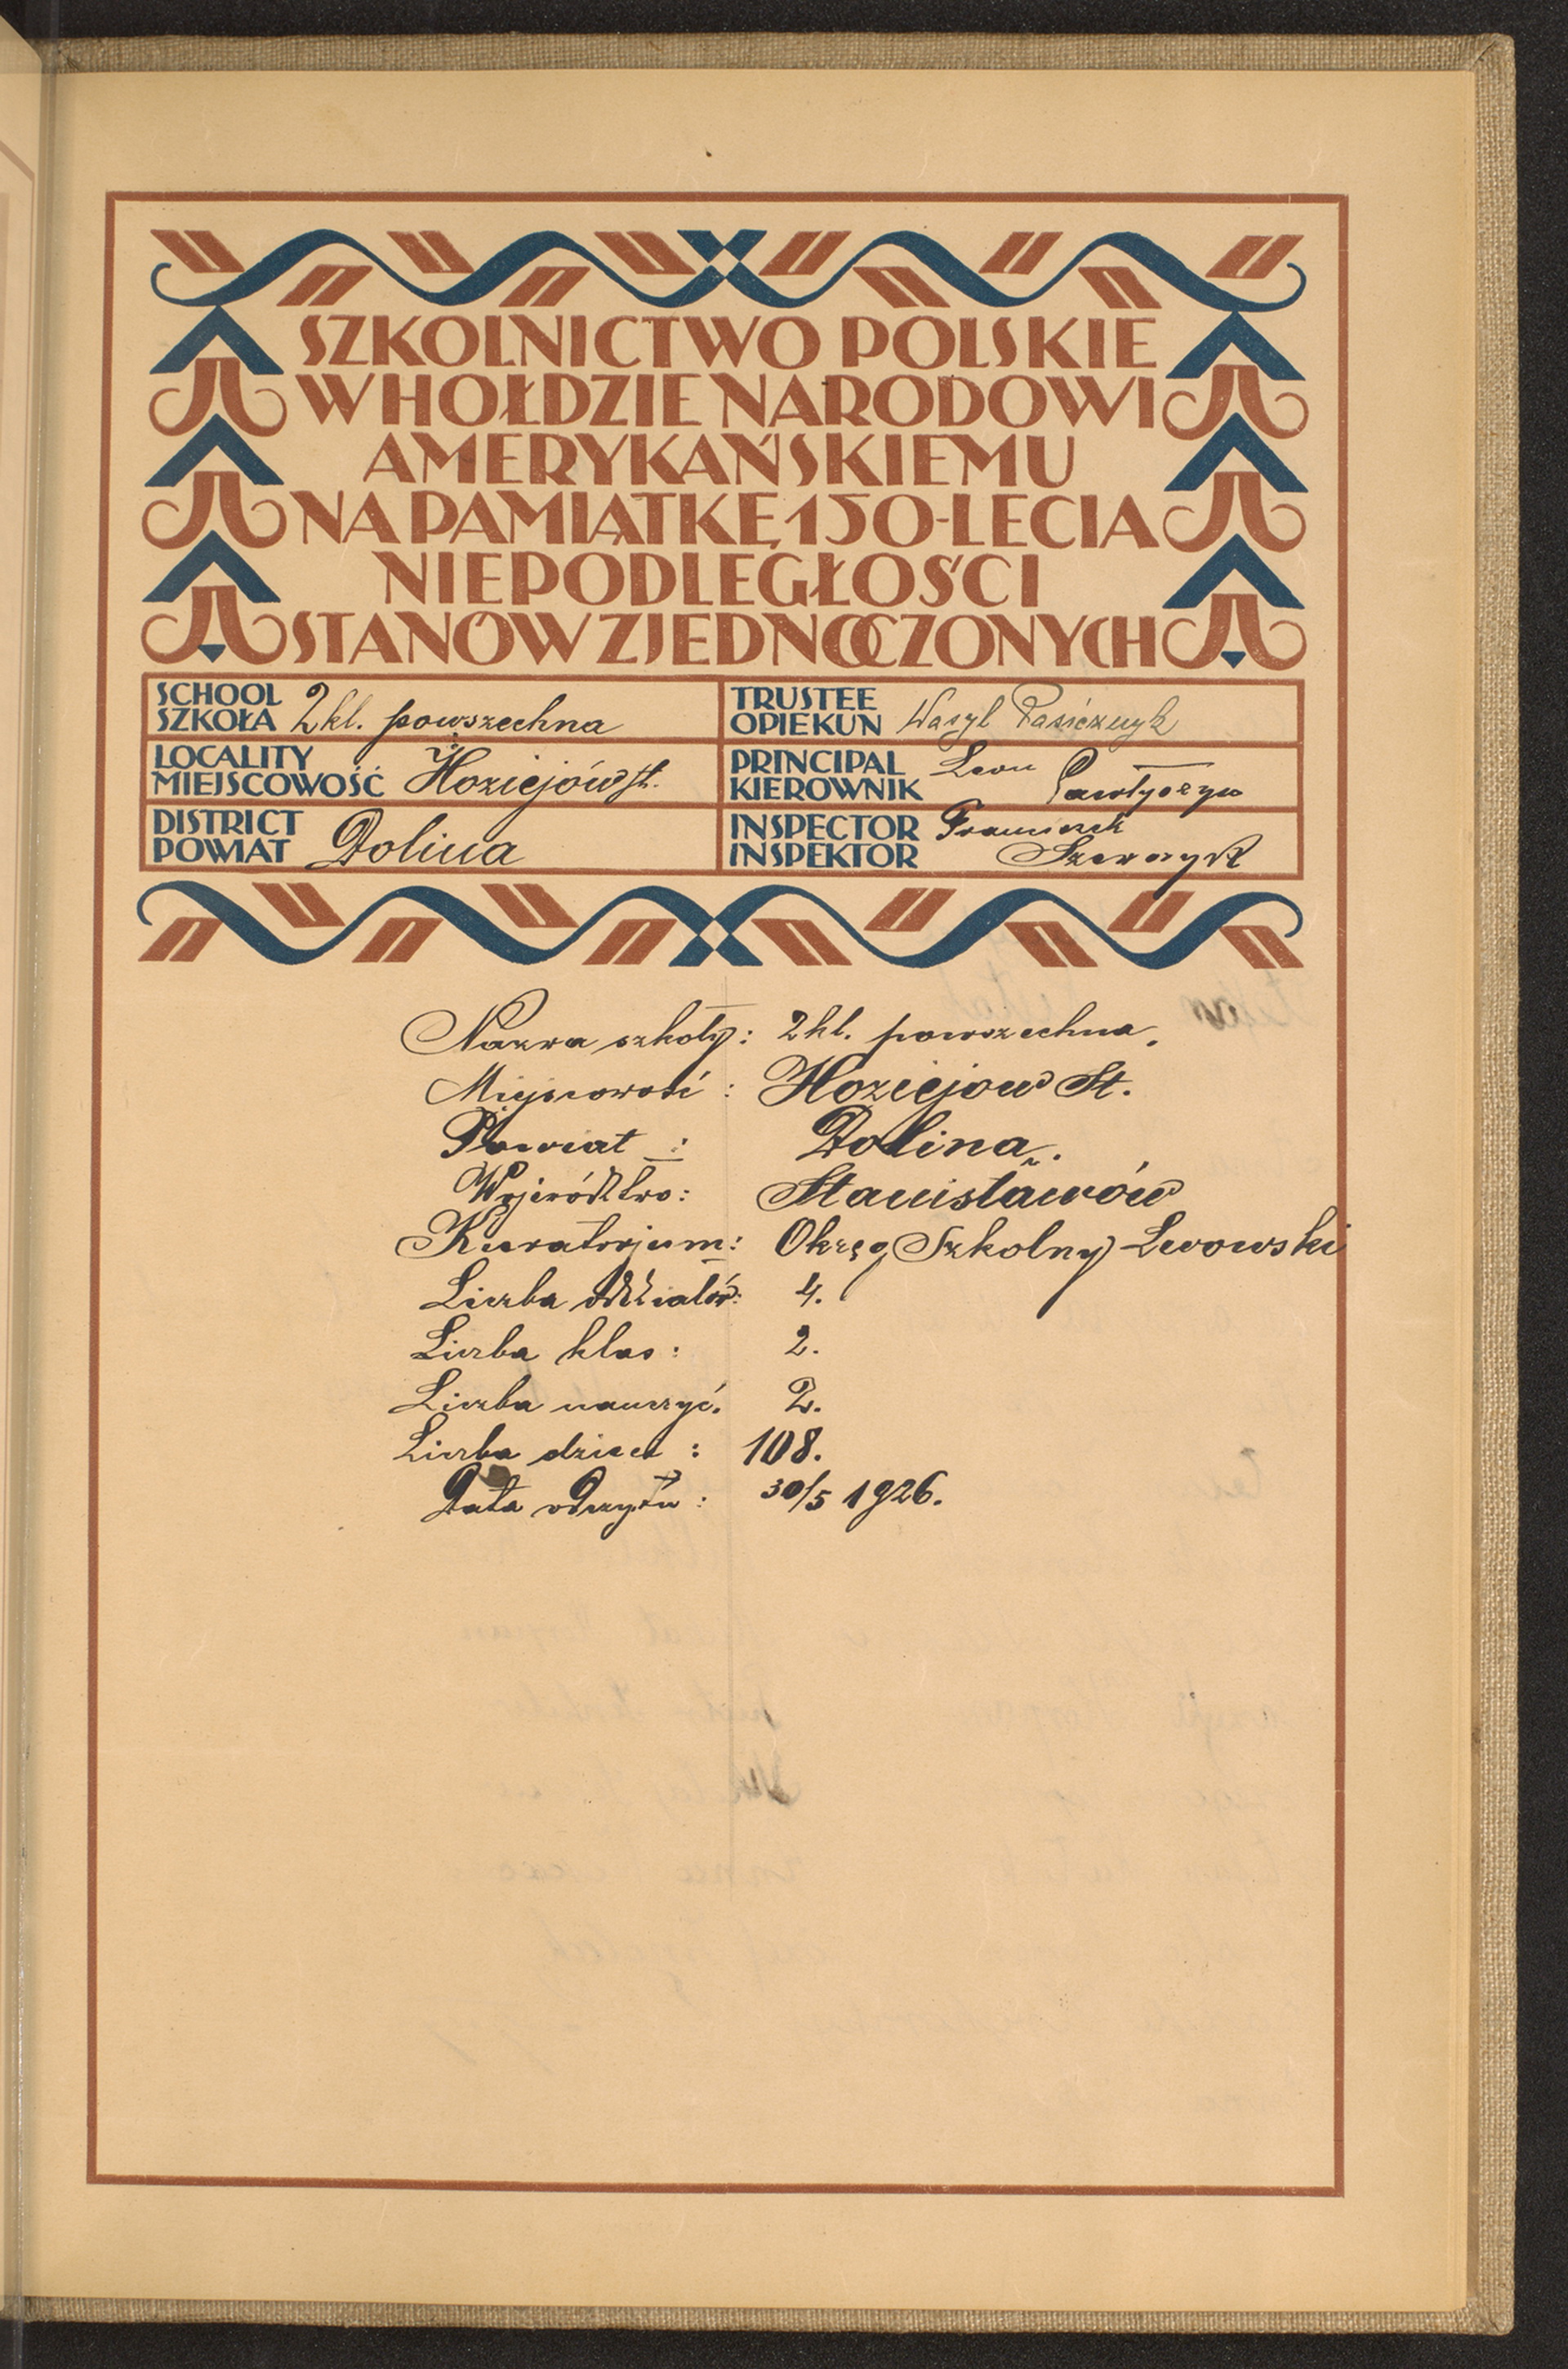 SZKOLNICTWO POLSKIE
W HOŁDZIE NARODOWI
AMERYKAŃSKIEMU
NA PAMIĄTKĘ 150-LECIA
NIEPODLEGŁOŚCI
STANÓW ZJEDNOCZONYCH
SCHOOL
SZKOŁA 2kl. powszechna
TRUSTEE
OPIEKUN Wasyl Pasicznyk
LOCALITY
MIEJSCOWOŚĆ Hoziejów st.
PRINCIPAL Leon
KIEROWNIK
DISTRICT
POWIAT Dolina
INSPECTOR Franciszek
INSPEKTOR Szewczyk
Nazwa szkoły: 2kl. powszechna.
Miejscowość: Hoziejow St.
Powiat: Dolina.
Województwo: Stanisławów
Kuratorjum: Okręg Szkolny Lwowski
Liczba oddziałów: 4.
Liczba klas: 2.
Liczba nauczyc. 2.
Liczba dzieci: 108.
Data odczytu: 30/5 1926.